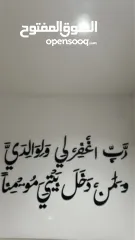 السوق المفتوح
opensooq.com
رَبِّ اغْفِرْ لِي وَلِوَالِدَيَّ
وَلِمَن دَخَلَ بَيْتِيَ مُؤْمِنًا